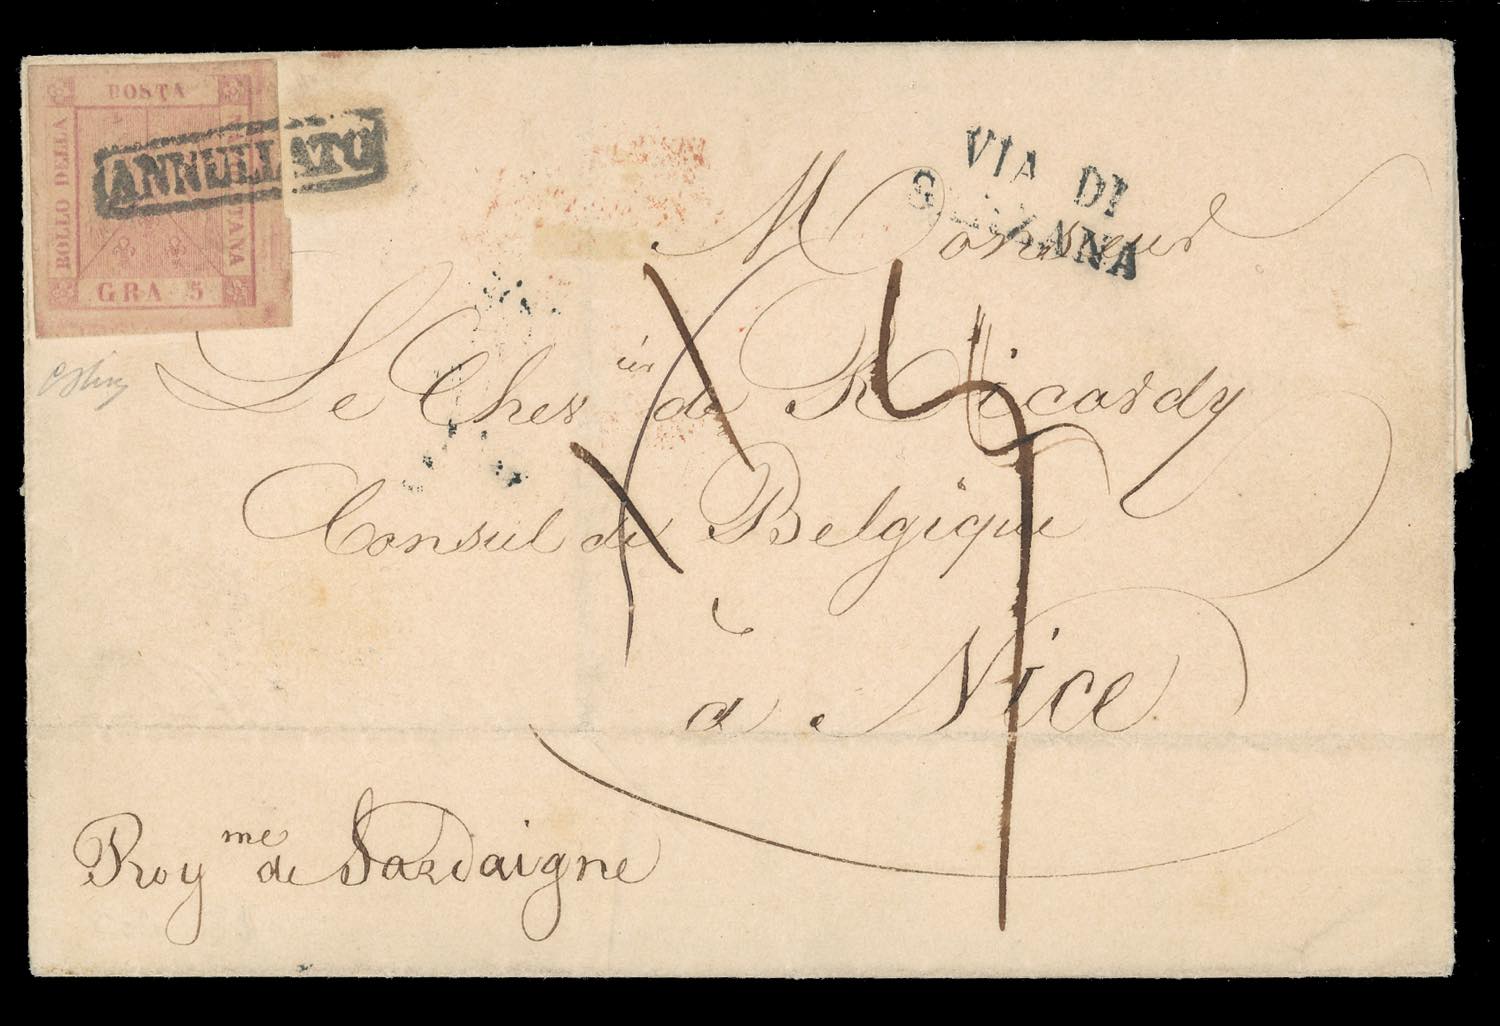 POSTA
BOLLO DELLA
GRA 5
ANNULLATO
VIA DI
Monsieur
Le Chev.ier de Ricardy
Consul de Belgique
à Nice
Roy.me de Sardaigne